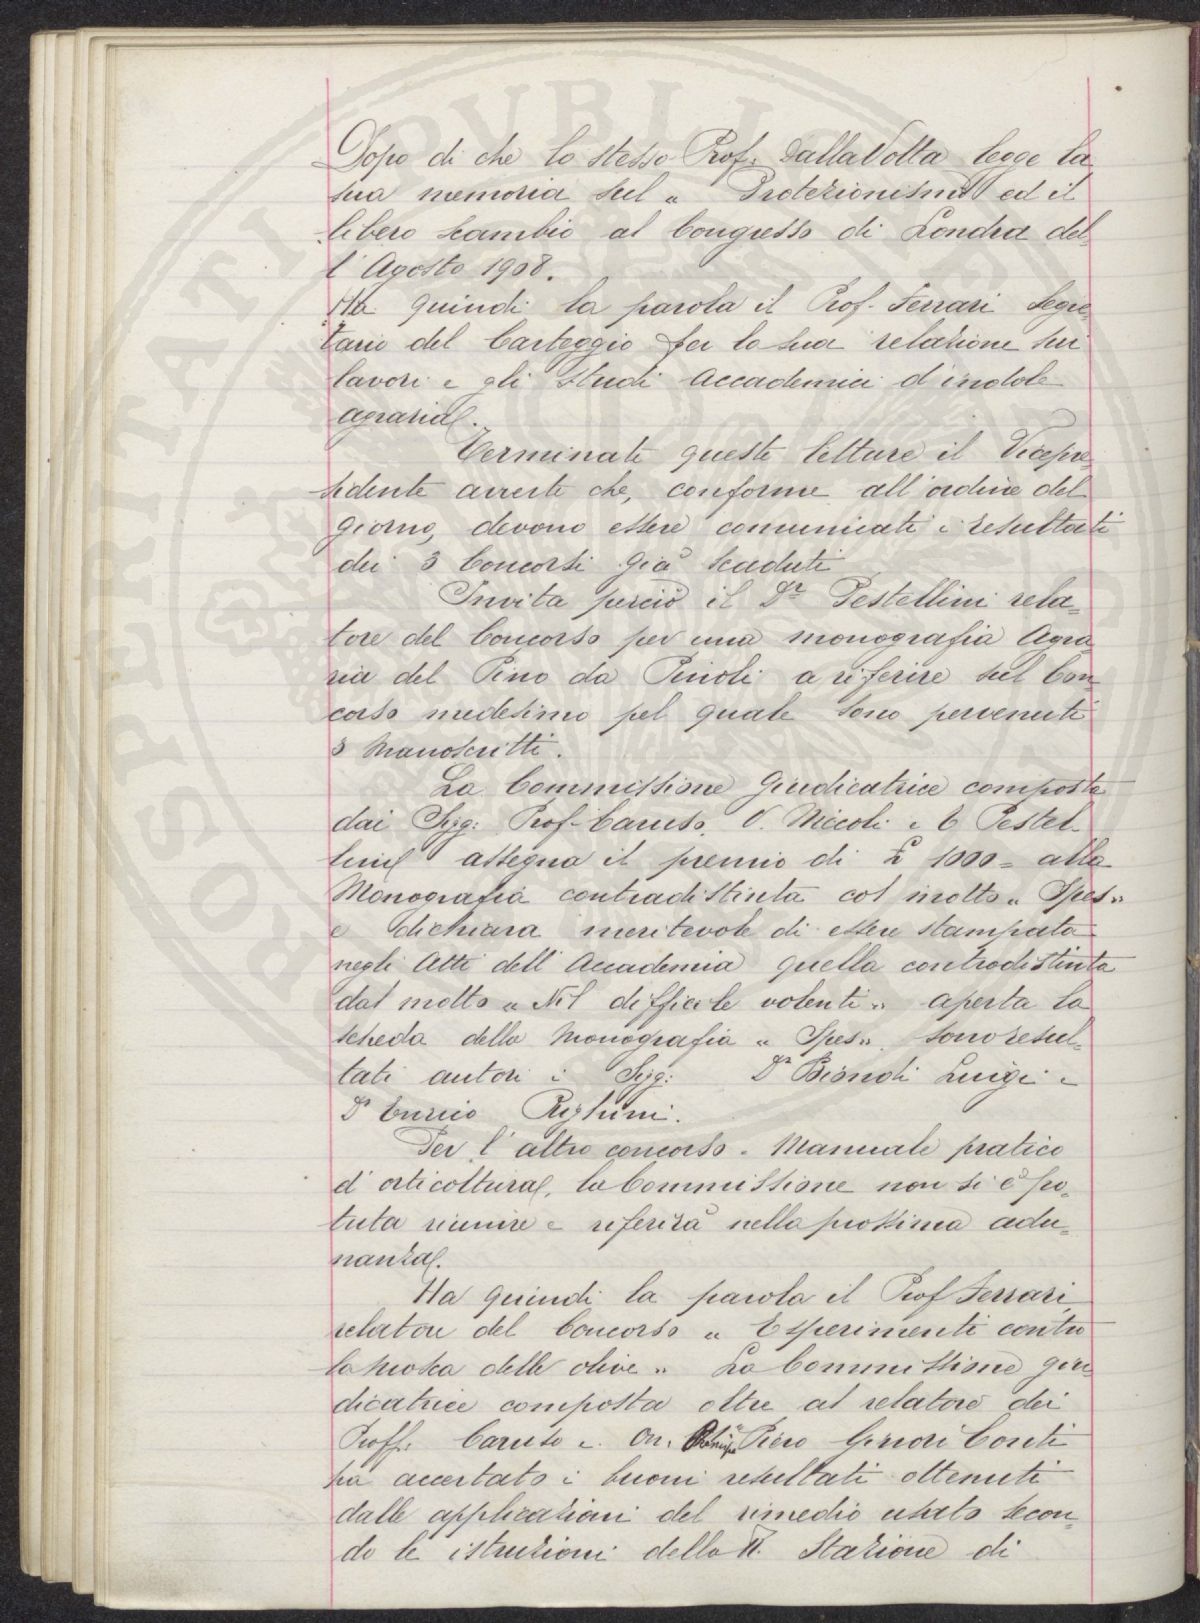 Dopo di che lo stesso Prof. Dalla Volta legge la
sua memoria sul " Protezionismo ed il
libero scambio al Congresso di Londra del=
l' Agosto 1908.
Ha quindi la parola il Prof. Ferrari Segre=
tario del Carteggio per la sua relazione sui
lavori e gli studi accademici d'indole
agraria.
Terminate queste letture il Vicepre=
sidente avverte che, conforme all'ordine del
giorno, devono essere comunicati i resultati
dei 3 Concorsi già scaduti
Invita perciò il Dr Pestellini rela=
tore del Concorso per una monografia Agra=
ria del Pino da Pinoli a riferire sul Con=
corso medesimo pel quale sono pervenuti
3 Manoscritti.
La Commissione Giudicatrice composta
dai Sigg: Prof. Caruso, V. Niccoli e C Pestel=
lini assegna il premio di £ 1000= alla
Monografia contradistinta col motto " Spes "
e dichiara meritevole di essere stampata
negli Atti dell' Accademia quella contradistinta
dal motto " Nil difficile volenti " aperta la
scheda della Monografia " Spes " sono resul=
tati autori i Sigg: Dr Biondi Luigi e
Dr Enrico Righini.
Per l' altro concorso = Manuale pratico
d' orticoltura, la Commissione non si è po=
tuta riunire e riferirà nella prossima adu=
nanza.
Ha quindi la parola il Prof Ferrari
relatore del Concorso " Esperimenti contro
la mosca delle olive " La Commissione giu=
dicatrice composta oltre al relatore dei
Proff. Caruso e On. Principe Piero Ginori Conti
ha accertato i buoni resultati ottenuti
dalle applicazioni del rimedio usato secon=
do le istruzioni della R. Stazione di